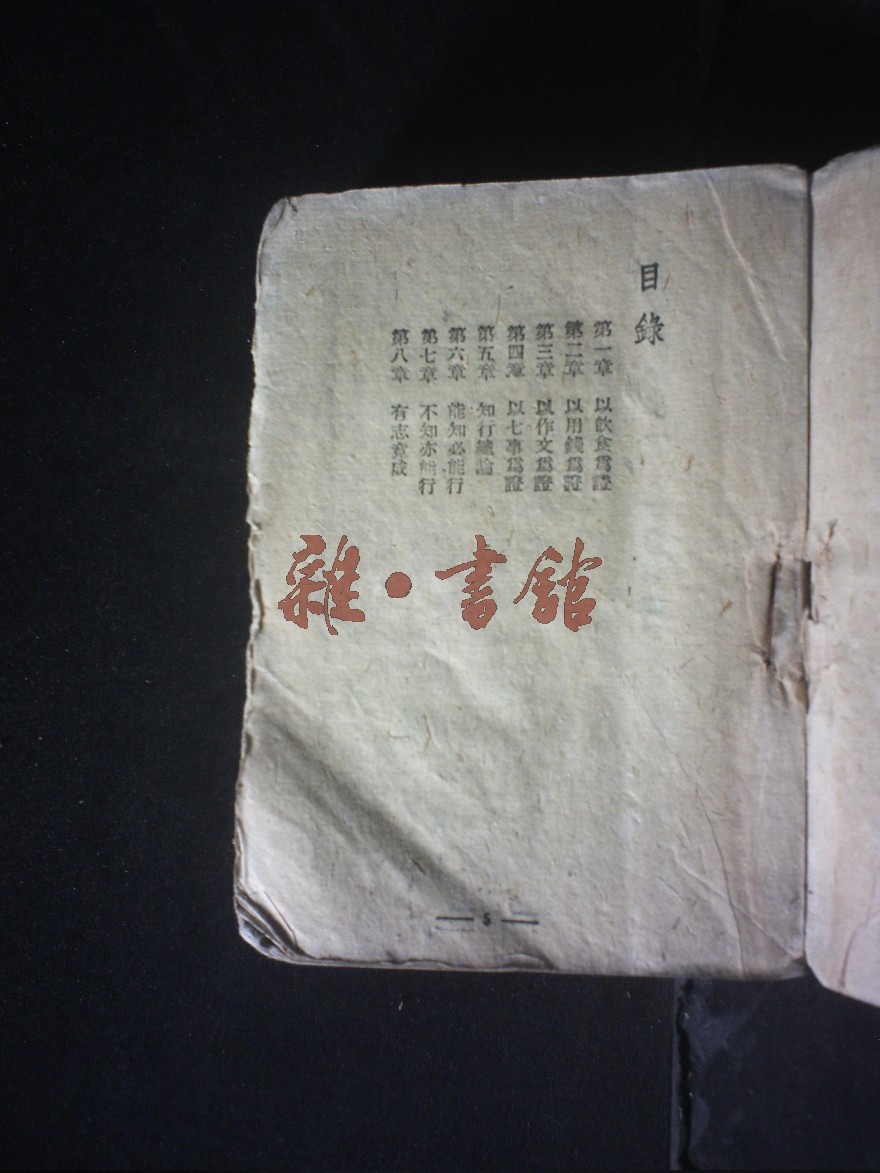 目錄
第一章 以飲食爲證
第二章 以用錢爲證
第三章 以作文爲證
第四章 以七事爲證
第五章 知行總論
第六章 能知必能行
第七章 不知亦能行
第八章 有志竟成
雜·書館
5